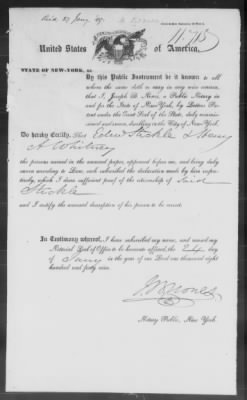 United States of America.
STATE OF NEW-YORK, ss.
By this Public Instrument be it known to all
whom the same doth or may in any wise concern,
that I, Joseph B. Nones, a Public Notary in
and for the State of New York, by Letters Pa-
tent under the Great Seal of the State, duly commis-
sioned and sworn, dwelling in the City of New-York,
Do hereby Certify, That Edwd Stickle & Henry
A Whitney
the persons named in the annexed paper, appeared before me, and being duly
sworn according to Law, each subscribed the declaration made by him respec-
tively, which I deem sufficient proof of the citizenship of said
Stickle
and I certify the annexed description of his person to be correct.
In Testimony whereof, I have subscribed my name, and caused my
Notarial Seal of Office to be hereunto affixed, the day
of Jany in the year of our Lord one thousand eight
hundred and forty nine
J B Nones
Notary Public, New York.